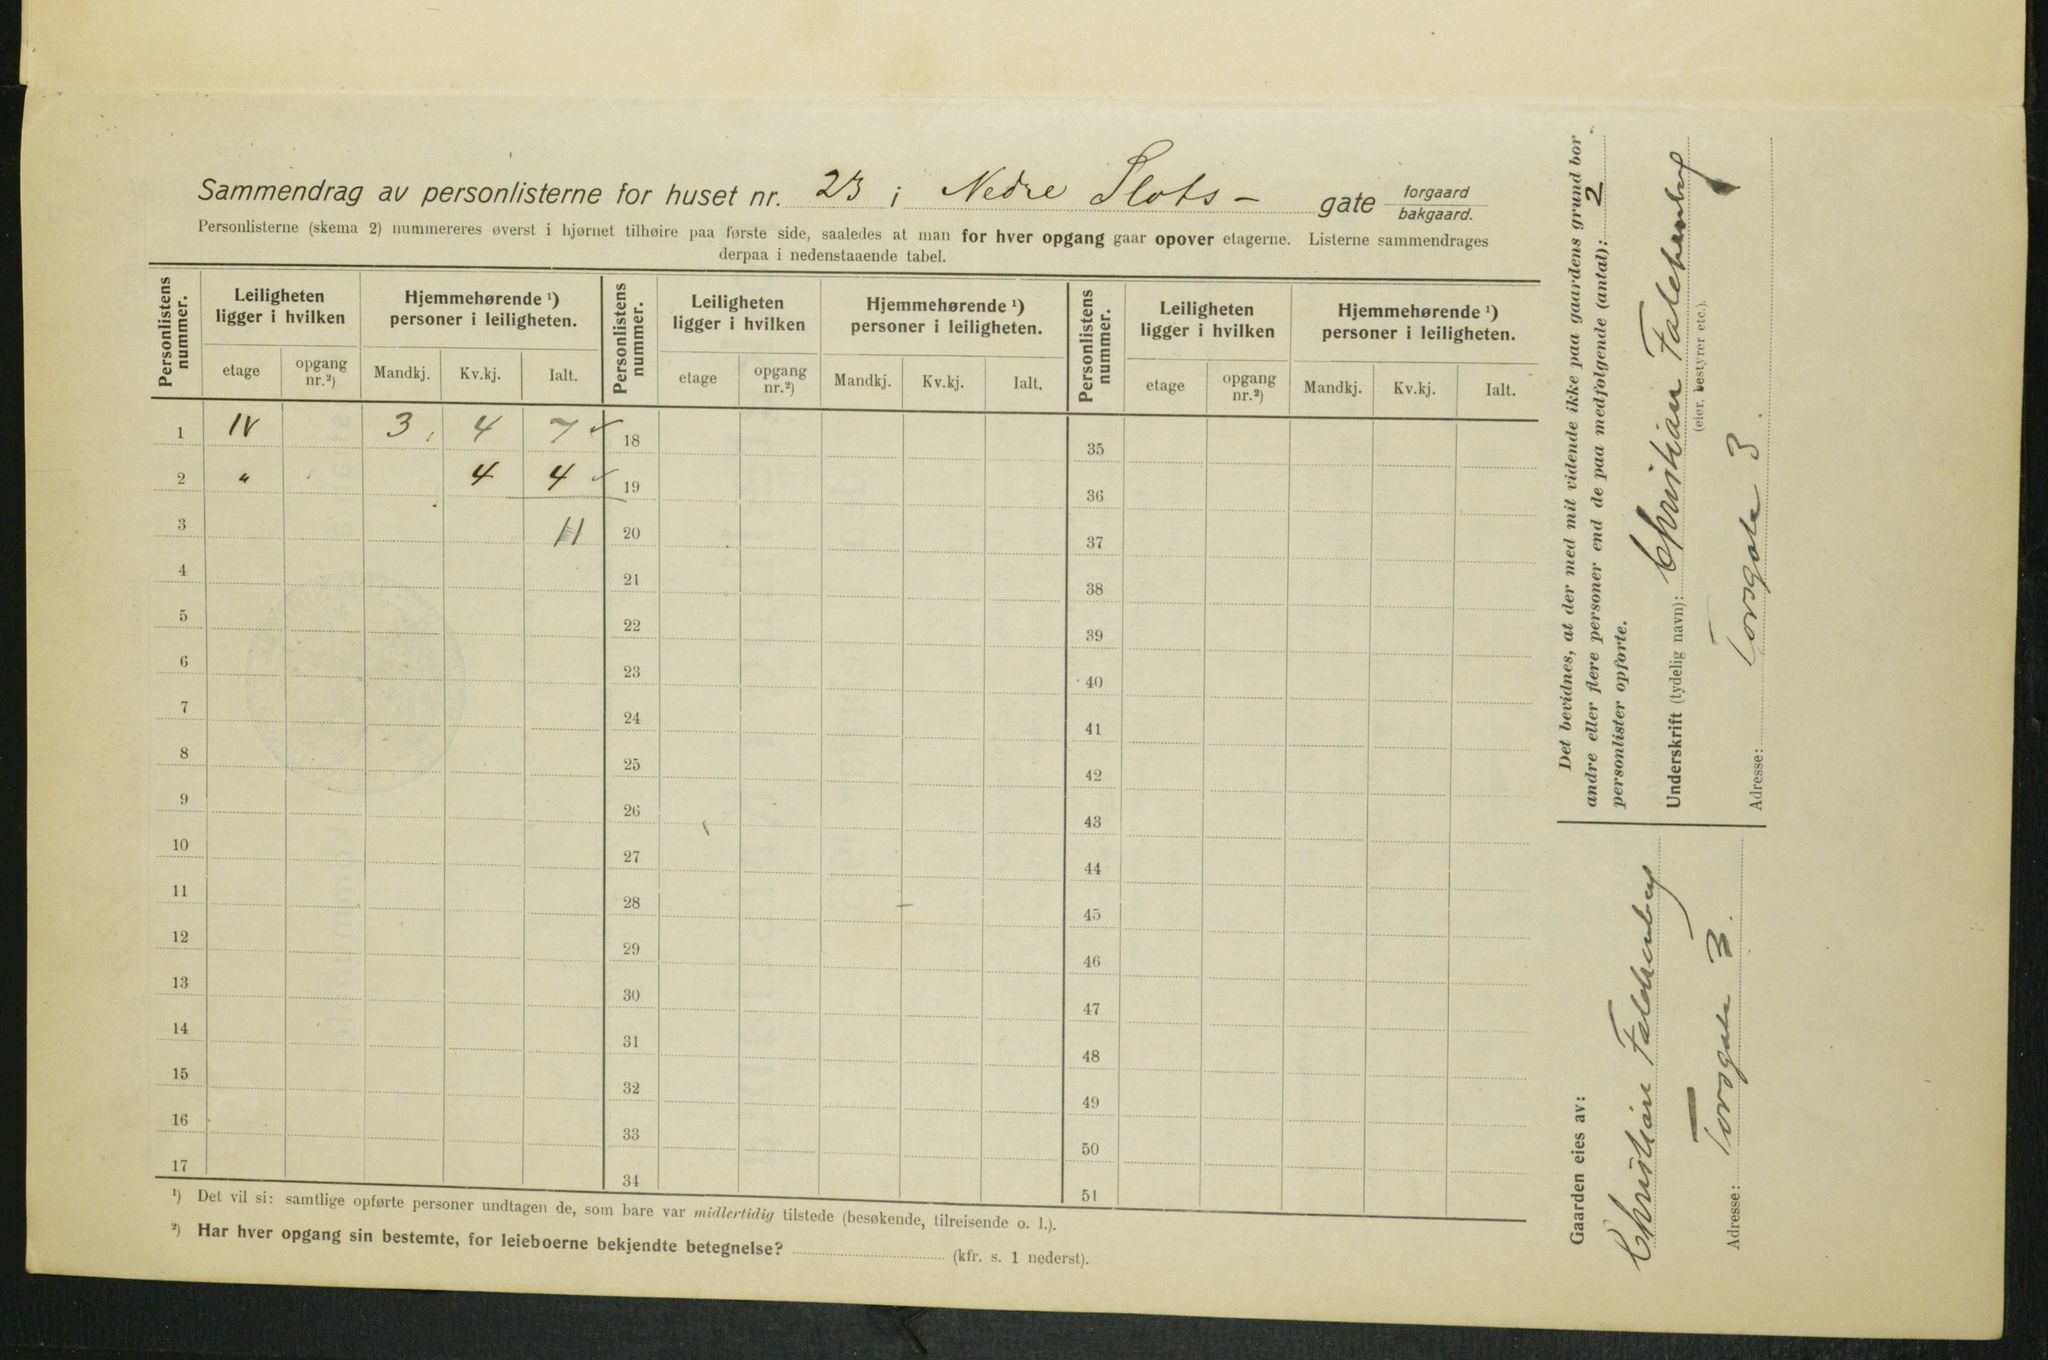 Sammendrag av personlisterne for huset nr. 23 i Nedre Slots - gate forgaard / bakgaard.
Personlisterne (skema 2) nummereres øverst i hjørnet tilhøire paa første side, saaledes at man for hver opgang gaar opover etagerne. Listerne sammendrages
derpaa i nedenstaaende tabel.
Personlistens nummer. Leiligheten ligger i hvilken Hjemmehørende ¹) personer i leiligheten. Personlistens nummer. Leiligheten ligger i hvilken Hjemmehørende ¹) personer i leiligheten. Personlistens nummer. Leiligheten ligger i hvilken Hjemmehørende ¹) personer i leiligheten.
etage opgang nr.²) Mandkj. Kv.kj. Ialt. etage opgang nr.²) Mandkj. Kv.kj. Ialt. etage opgang nr.²) Mandkj. Kv.kj. Ialt.
1 IV 3 4 7 18 35
2 " 4 4 19 36
3 11 20 37
4 21 38
5 22 39
6 23 40
7 24 41
8 25 42
9 26 43
10 27 44
11 28 45
12 29 46
13 30 47
14 31 48
15 32 49
16 33 50
17 34 51
¹) Det vil si: samtlige opførte personer undtagen de, som bare var midlertidig tilstede (besøkende, tilreisende o. l.).
²) Har hver opgang sin bestemte, for leieboerne bekjendte betegnelse? (kfr. s. 1 nederst).
Det bevidnes, at der med mit vidende ikke paa gaardens grund bor
andre eller flere personer end de paa medfølgende (antal): 2
personlister opførte.
Underskrift (tydelig navn): Christian Falchenberg
(eier, bestyrer etc.).
Adresse: Torvgata 3.
Gaarden eies av:
Christian Falchenberg
Adresse: Torvgata 3.